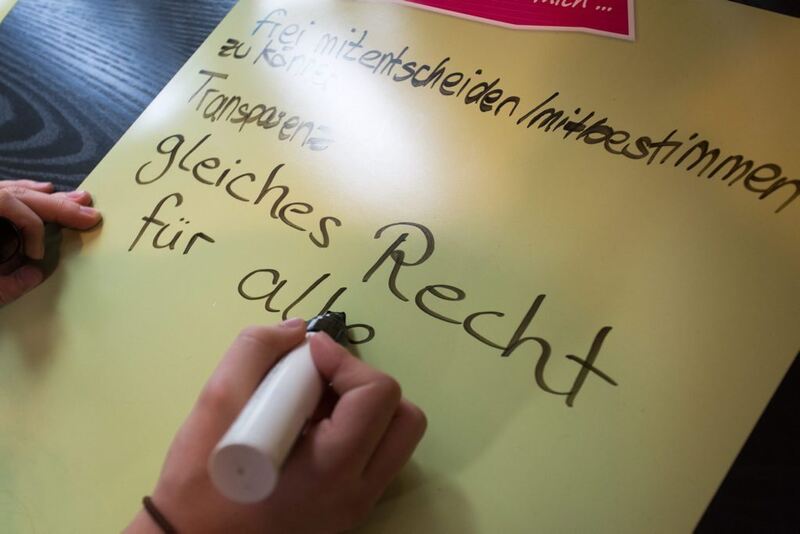 mich ...
frei mitentscheiden/mitbestimmen
zu können
Transparenz
gleiches Recht
für alle